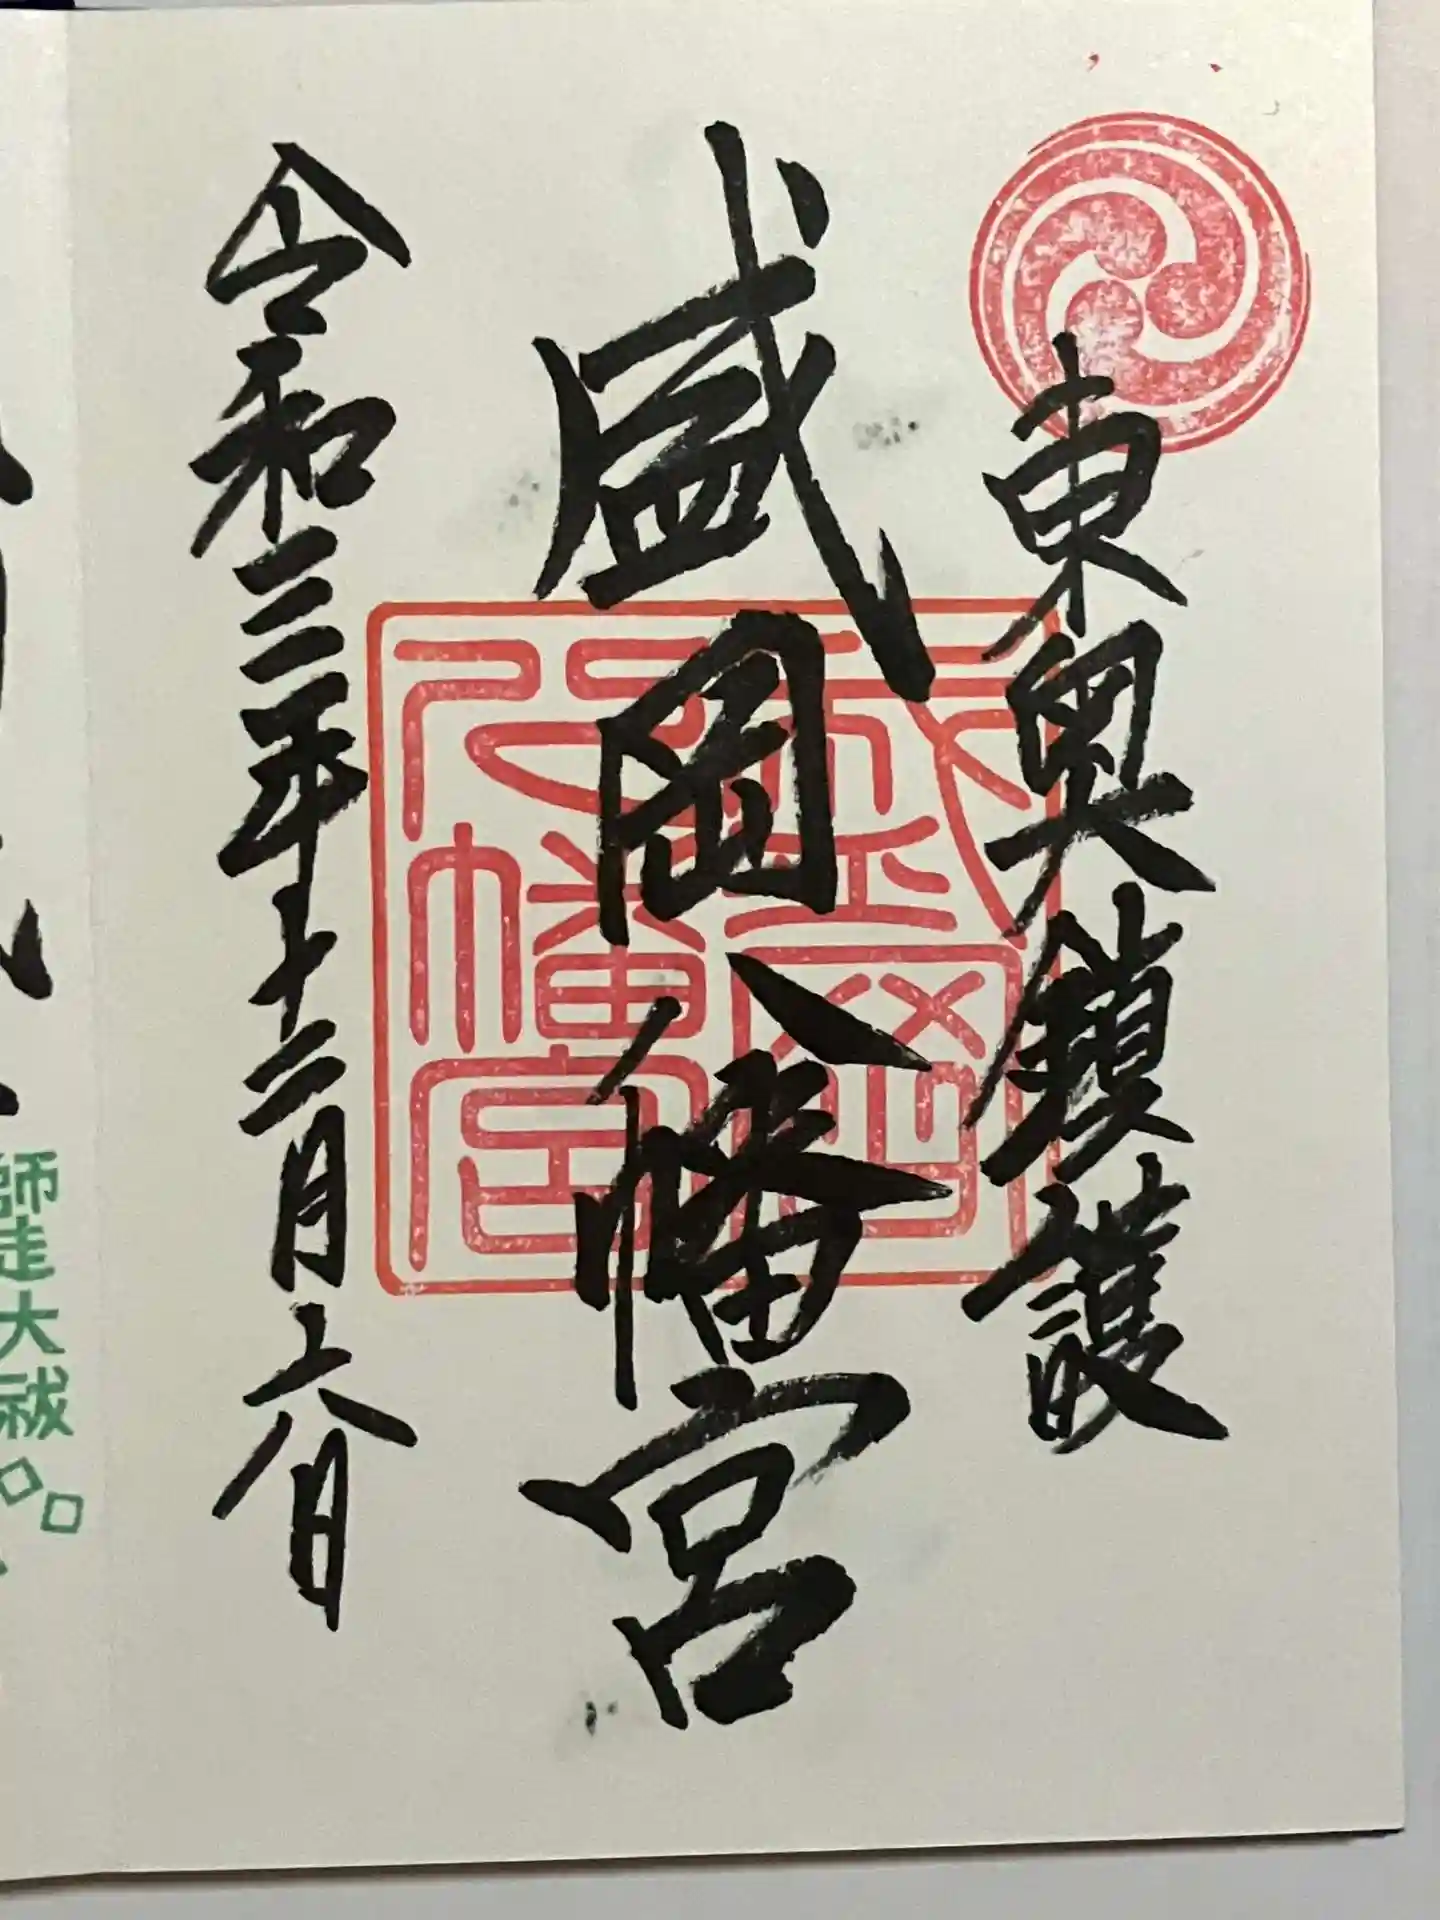 東奥鎮護
盛岡八幡宮
盛岡八幡宮
令和三年十二月十八日
師走大祓